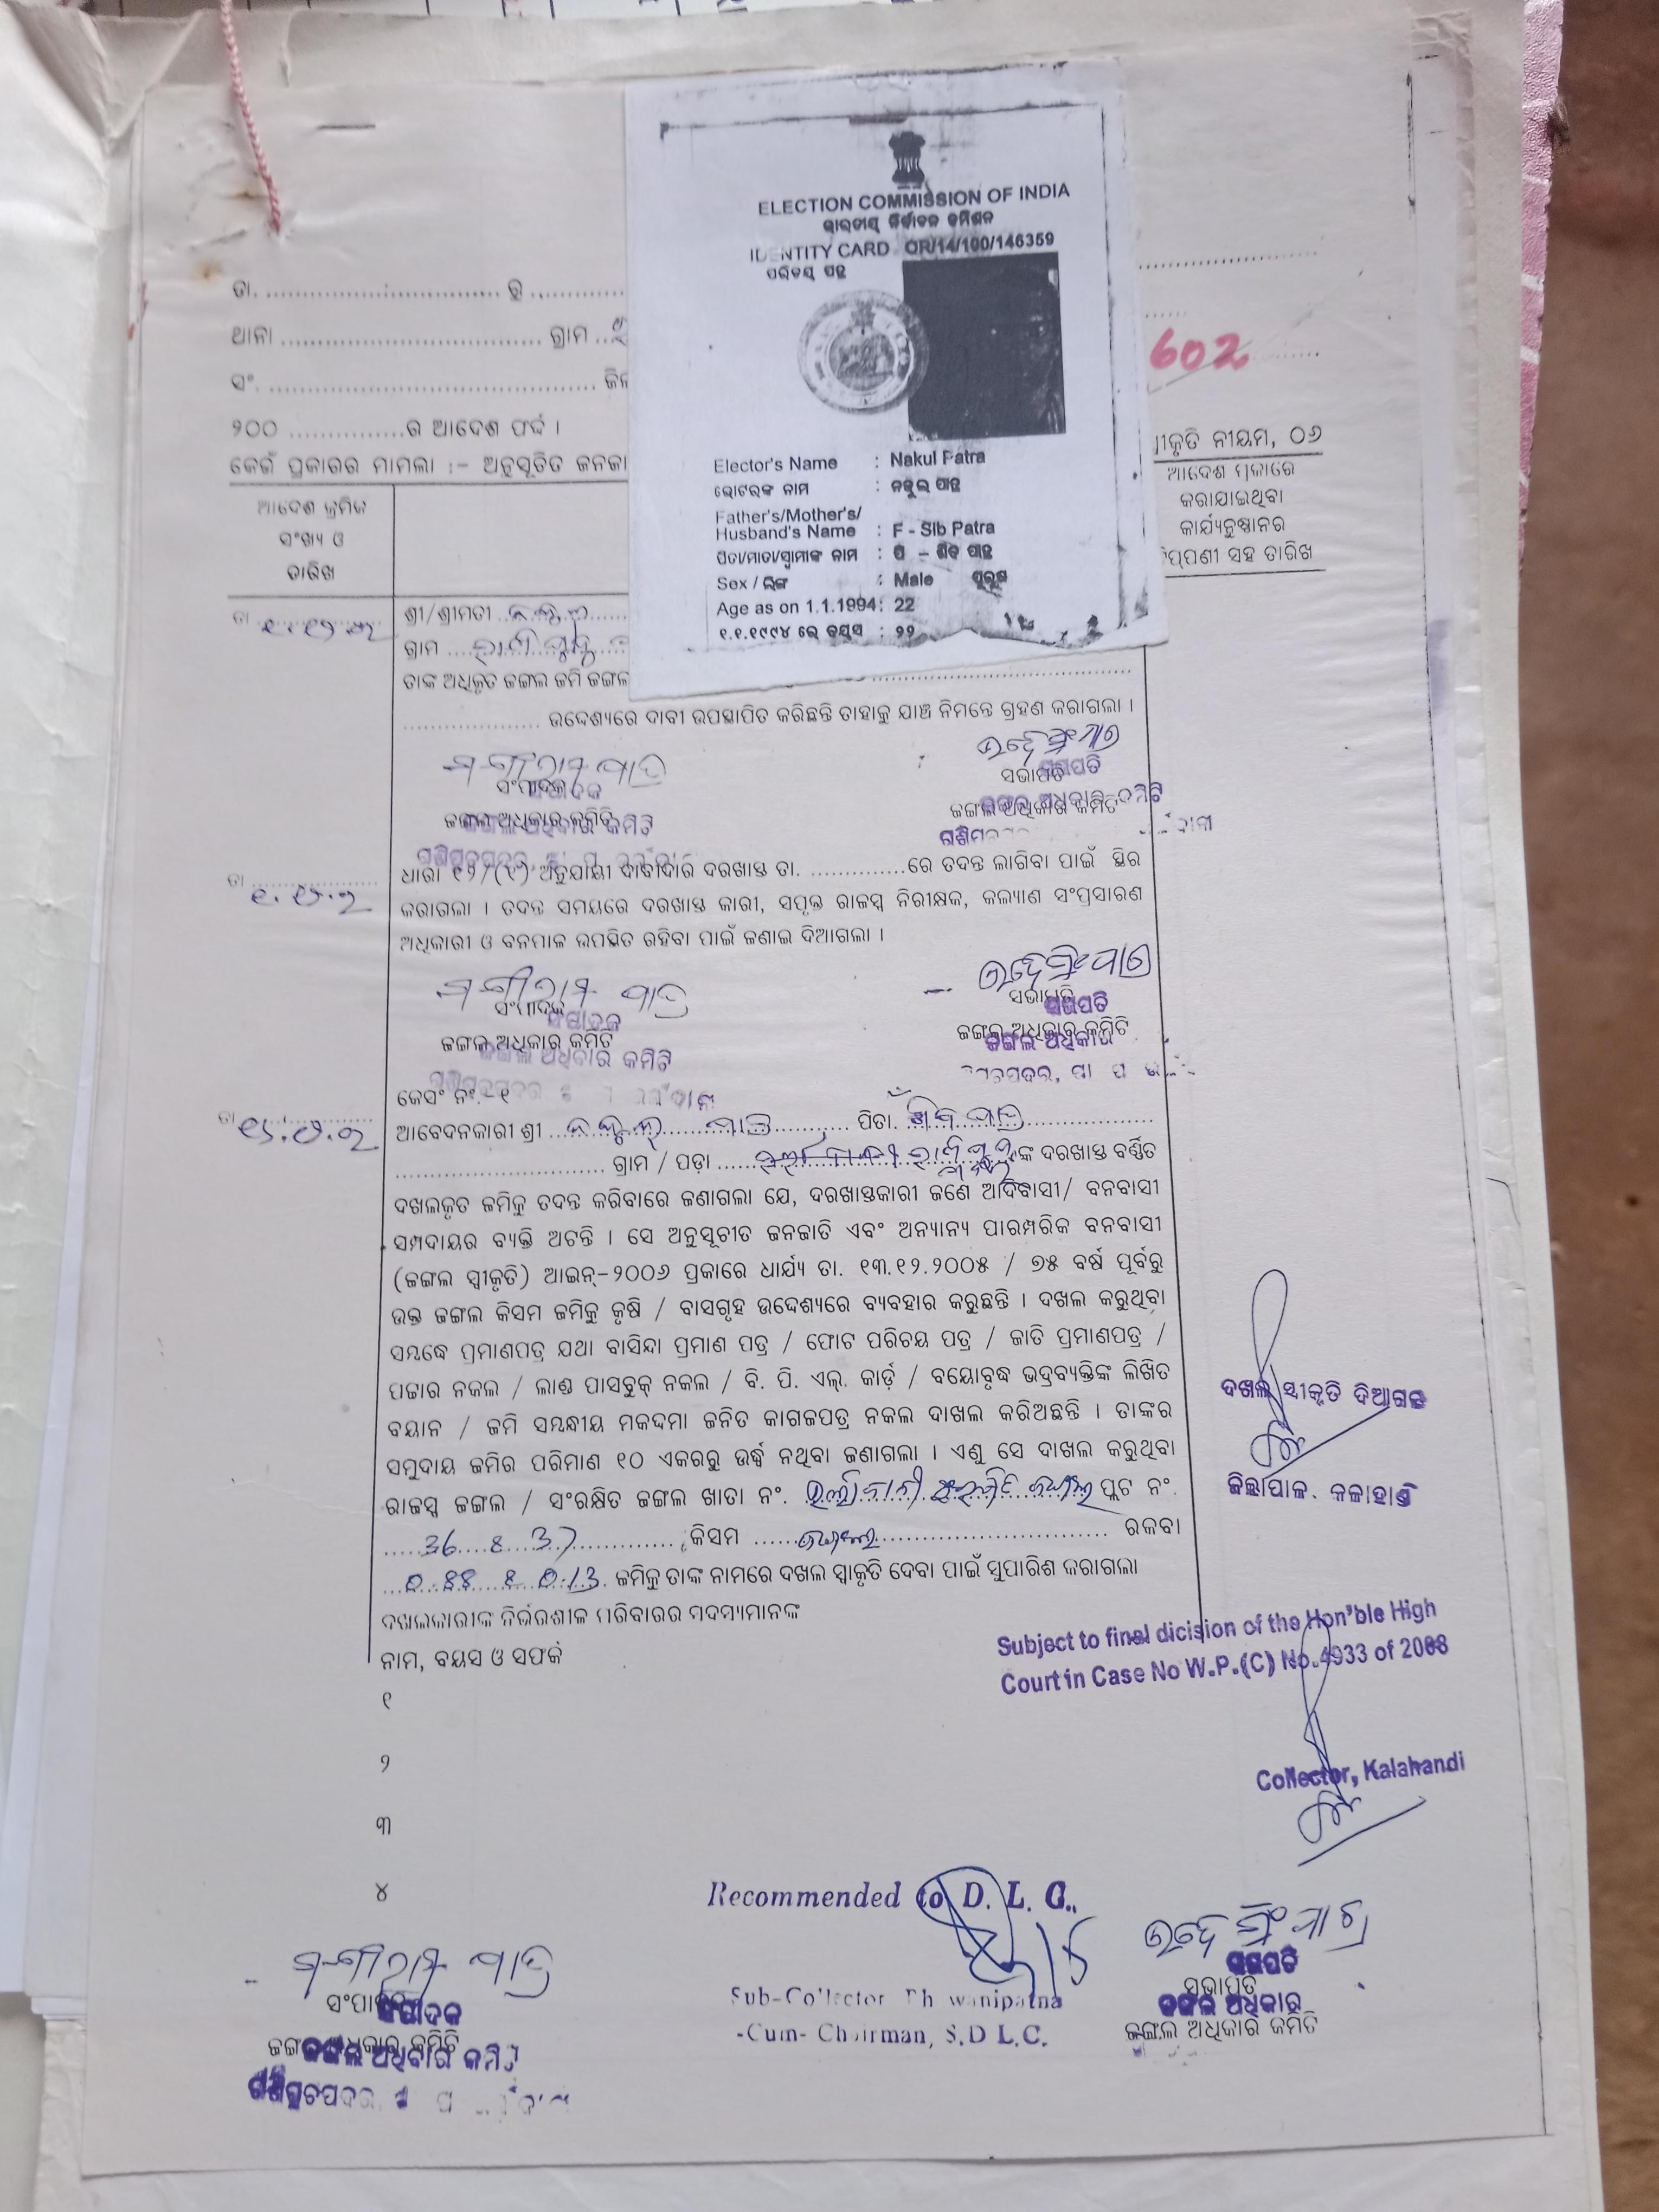 ELECTION COMMISSION OF INDIA
ଭାରତୀୟ ନିର୍ବାଚନ କମିଶନ
IDENTITY CARD OR/14/100/146359
ପରିଚୟ ପତ୍ର
ତା. ........ ରୁ ........
ଥାନା ........ ଗ୍ରାମ
602
ସଂ. ........
୨୦୦ ........ର ଆଦେଶ ଫର୍ଦ୍ଦ ।
କେଉଁ ପ୍ରକାରର ମାମଲା :- ଅନୁସୂଚିତ
ନୀୟମ, ୦୬
Elector's Name : Nakul Patra
ଭୋଟରଙ୍କ ନାମ : ନକୁଲ ପାତ୍ର
Father's/Mother's/
Husband's Name : F - Sib Patra
ପିତା/ମାତା/ସ୍ୱାମୀଙ୍କ ନାମ : ପି - ଶିବ ପାତ୍ର
Sex / ଲିଙ୍ଗ : Male ପୁରୁଷ
Age as on 1.1.1994: 22
୧.୧.୧୯୯୪ ରେ ବୟସ : ୨୨
ଆଦେଶ କ୍ରମିକ
ସଂଖ୍ୟ ଓ
ତାରିଖ
ଆଦେଶ ମୂକାରେ
କରାଯାଇଥିବା
କାର୍ଯ୍ୟନୁଷ୍ଠାନର
ସହ ତାରିଖ
ତା
ଶ୍ରୀ/ଶ୍ରୀମତୀ ନକୁଲ
ଗ୍ରାମ
ତାଙ୍କ ଅଧିକୃତ ଜଙ୍ଗଲ ଜମି ଜଙ୍ଗଲ
........ ଉଦ୍ଦେଶ୍ୟରେ ଦାବୀ ଉପସ୍ଥାପିତ କରିଛନ୍ତି ତାହାକୁ ଯାଞ୍ଚ ନିମନ୍ତେ ଗ୍ରହଣ କରାଗଲା ।
ସଂପାଦକ ସଭାପତି
ଜଙ୍ଗଲ ଅଧିକାର କମିଟି ଜଙ୍ଗଲ ଅଧିକାର କମିଟି
ତା
ଧାରା ୧୨/(୧) ଅନୁଯାୟୀ ଦାବୀଦାର ଦରଖାସ୍ତ ତା. ........ରେ ତଦନ୍ତ ଲାଗିବା ପାଇଁ ସ୍ଥିର
କରାଗଲା । ତଦନ୍ତ ସମୟରେ ଦରଖାସ୍ତ କାରୀ, ସପୃକ୍ତ ରାଜସ୍ୱ ନିରୀକ୍ଷକ, କଲ୍ୟାଣ ସଂପ୍ରସାରଣ
ଅଧିକାରୀ ଓ ବନପାଳ ଉପସ୍ଥିତ ରହିବା ପାଇଁ ଜଣାଇ ଦିଆଗଲା ।
ସଂପାଦକ ସଭାପତି
ଜଙ୍ଗଲ ଅଧିକାର କମିଟି ଜଙ୍ଗଲ ଅଧିକାର କମିଟି
କେସଂ ନଂ.-୧
ତା
ଆବେଦନକାରୀ ଶ୍ରୀ ନକୁଲ ପାତ୍ର ପିତା. ଶିବ ପାତ୍ର
........ ଗ୍ରାମ / ପଡ଼ା ........ଙ୍କ ଦରଖାସ୍ତ ବର୍ଣ୍ଣିତ
ଦଖଲକୃତ ଜମିକୁ ତଦନ୍ତ କରିବାରେ ଜଣାଗଲା ଯେ, ଦରଖାସ୍ତକାରୀ ଜଣେ ଆଦିବାସୀ/ ବନବାସୀ
ସମ୍ପଦାୟର ବ୍ୟକ୍ତି ଅଟନ୍ତି । ସେ ଅନୁସୂଚୀତ ଜନଜାତି ଏବଂ ଅନ୍ୟାନ୍ୟ ପାରମ୍ପରିକ ବନବାସୀ
(ଜଙ୍ଗଲ ସ୍ୱୀକୃତି) ଆଇନ୍-୨୦୦୬ ପ୍ରକାରେ ଧାର୍ଯ୍ୟ ତା. ୧୩.୧୨.୨୦୦୫ / ୭୫ ବର୍ଷ ପୂର୍ବରୁ
ଉକ୍ତ ଜଙ୍ଗଲ କିସମ ଜମିକୁ କୃଷି / ବାସଗୃହ ଉଦ୍ଦେଶ୍ୟରେ ବ୍ୟବହାର କରୁଛନ୍ତି । ଦଖଲ କରୁଥିବା
ସମ୍ବନ୍ଧେ ପ୍ରମାଣପତ୍ର ଯଥା ବାସିନ୍ଦା ପ୍ରମାଣ ପତ୍ର / ଫୋଟ ପରିଚୟ ପତ୍ର / ଜାତି ପ୍ରମାଣପତ୍ର /
ପଟ୍ଟାର ନକଲ / ଲାଣ୍ଡ ପାସବୁକ୍ ନକଲ / ବି. ପି. ଏଲ୍. କାର୍ଡ଼ / ବୟୋବୃଦ୍ଧ ଭଦ୍ରବ୍ୟକ୍ତିଙ୍କ ଲିଖିତ
ବୟାନ / ଜମି ସମ୍ବନ୍ଧୀୟ ମକଦ୍ଦମା ଜନିତ କାଗଜପତ୍ର ନକଲ ଦାଖଲ କରିଅଛନ୍ତି । ତାଙ୍କର
ସମୁଦାୟ ଜମିର ପରିମାଣ ୧୦ ଏକରରୁ ଉର୍ଦ୍ଧ୍ୱ ନଥିବା ଜଣାଗଲା । ଏଣୁ ସେ ଦାଖଲ କରୁଥିବା
ରାଜସ୍ୱ ଜଙ୍ଗଲ / ସଂରକ୍ଷିତ ଜଙ୍ଗଲ ଖାତା ନଂ. ........ ପ୍ଲଟ ନଂ.
36 & 37 କିସମ ଜଙ୍ଗଲ ରକବା
0.88 & 0.13 ଜମିକୁ ତାଙ୍କ ନାମରେ ଦଖଲ ସ୍ୱୀକୃତି ଦେବା ପାଇଁ ସୁପାରିଶ କରାଗଲା
ଦଖଲକାରୀଙ୍କ ନିର୍ଭରଶୀଳ ପରିବାରର ସଦସ୍ୟମାନଙ୍କ
ନାମ, ବୟସ ଓ ସମ୍ପର୍କ
ଦଖଲ ସ୍ୱୀକୃତି ଦିଆଗଲା
ଜିଲ୍ଲାପାଳ. କଳାହାଣ୍ଡି
Subject to final dicision of the Hon'ble High
Court in Case No W.P.(C) No.4933 of 2008
୧
୨
Collector, Kalahandi
୩
୪
Recommended to D. L. C.,
Sub-Collector
-Cum- Chairman, S.D L.C.
ସଂପାଦକ ସଭାପତି
ଜଙ୍ଗଲ ଅଧିକାର କମିଟି ଜଙ୍ଗଲ ଅଧିକାର କମିଟି